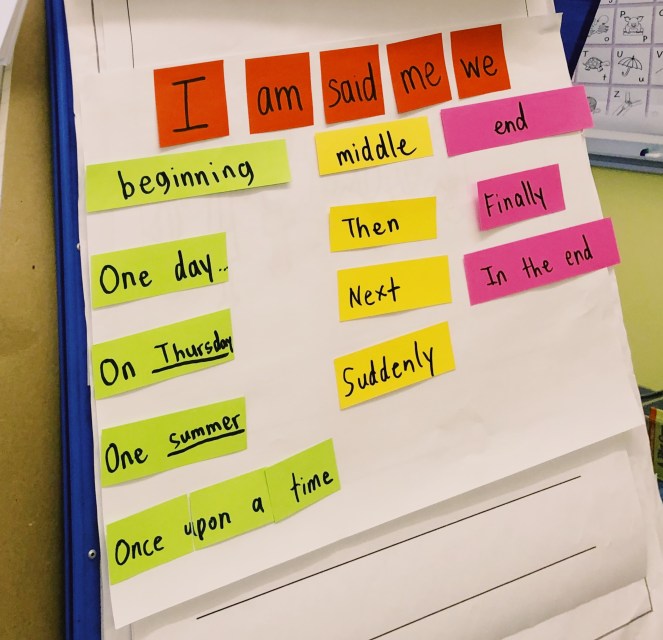 I am said me we
beginning
One day..
On Thursday
One summer
Once upon a time
middle
Then
Next
Suddenly
end
Finally
In the end
P
T
U
V